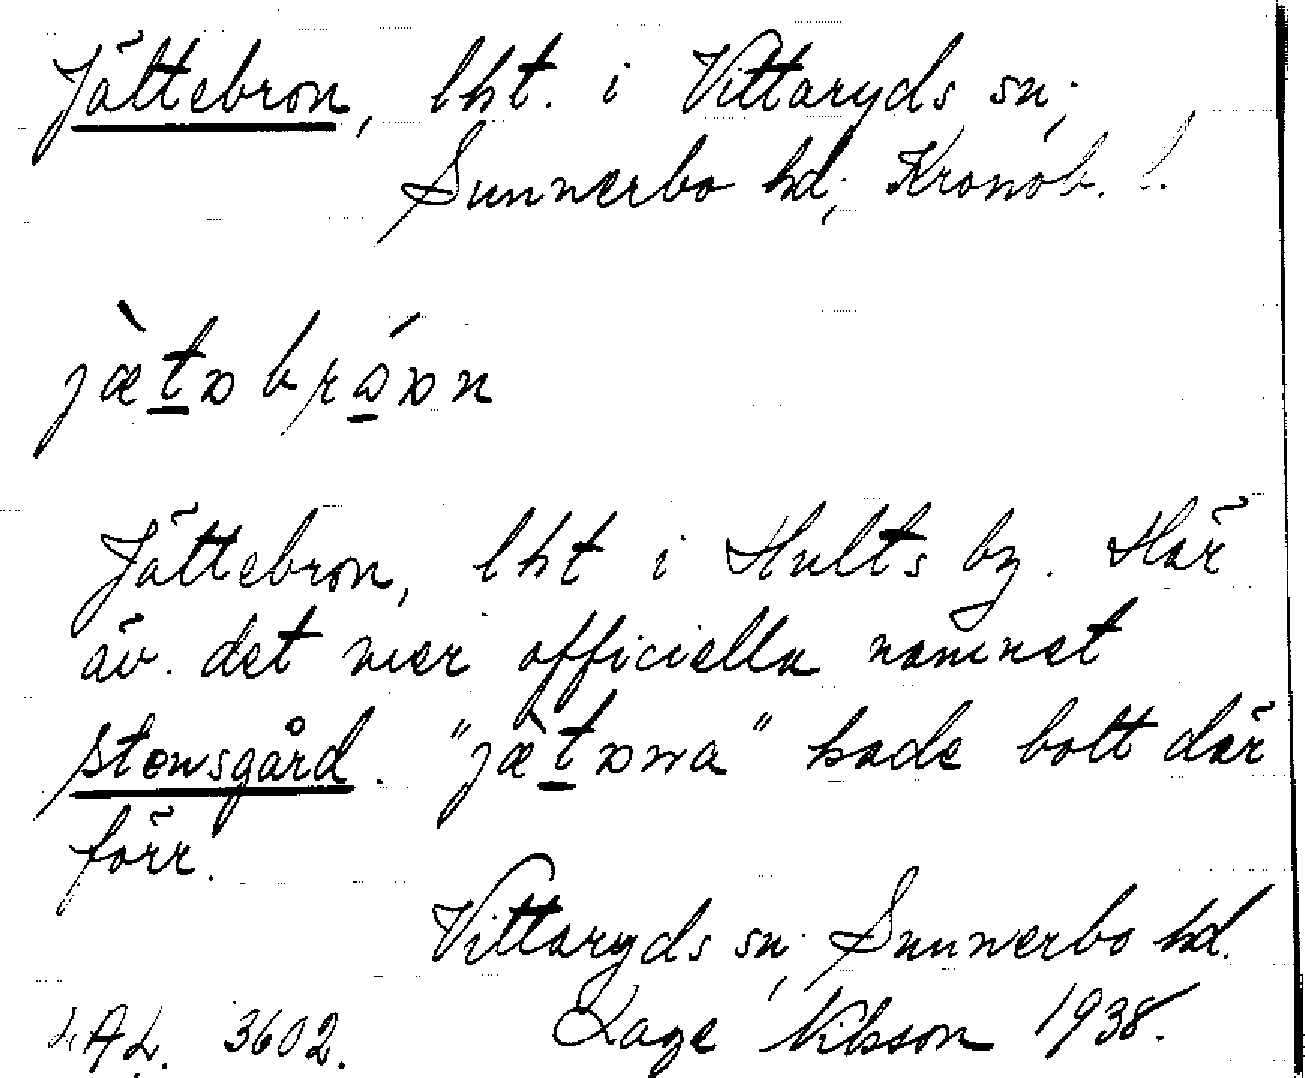 Jättebron, lht. i Vittaryds sn;
Sunnerbo hd; Kronob. l.
jæ̀tə brá̱ən
Jättebron, lht i Hults by. Här
äv. det mer officiella namnet
stensgård. "jæ̀təna" hade bott där
förr.
Vittaryds sn; Sunnerbo hd.
LAL. 3602. Nilsson 1938.